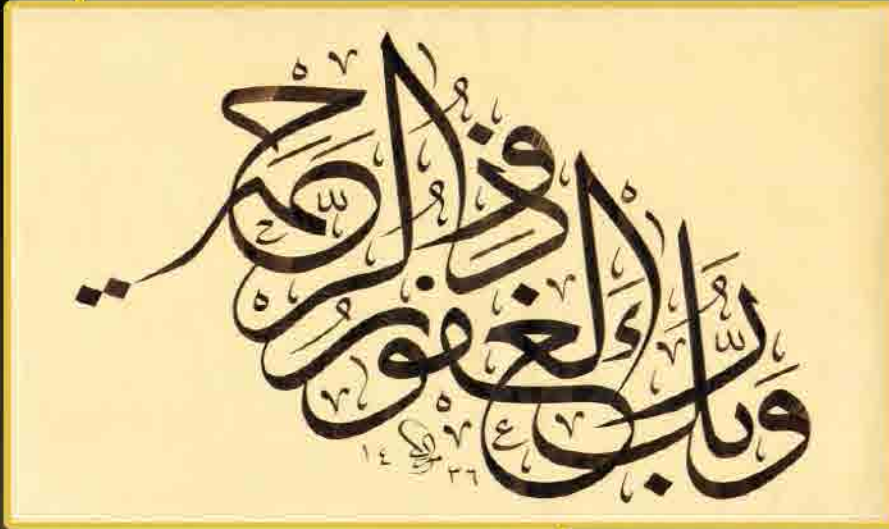 وَرَبُّكَ الْغَفُورُ ذُو الرَّحْمَةِ
١٤٣٦